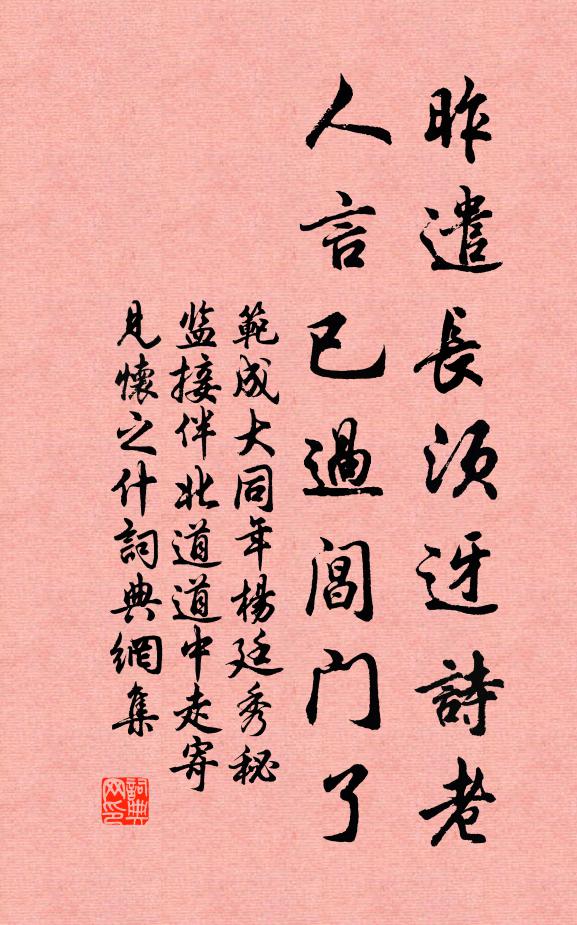 昨遣長須迓詩老
人言已過閶門了
範成大同年楊廷秀秘
监接伴北道道中走寄
見懷之什詞典網集
詞典
网印